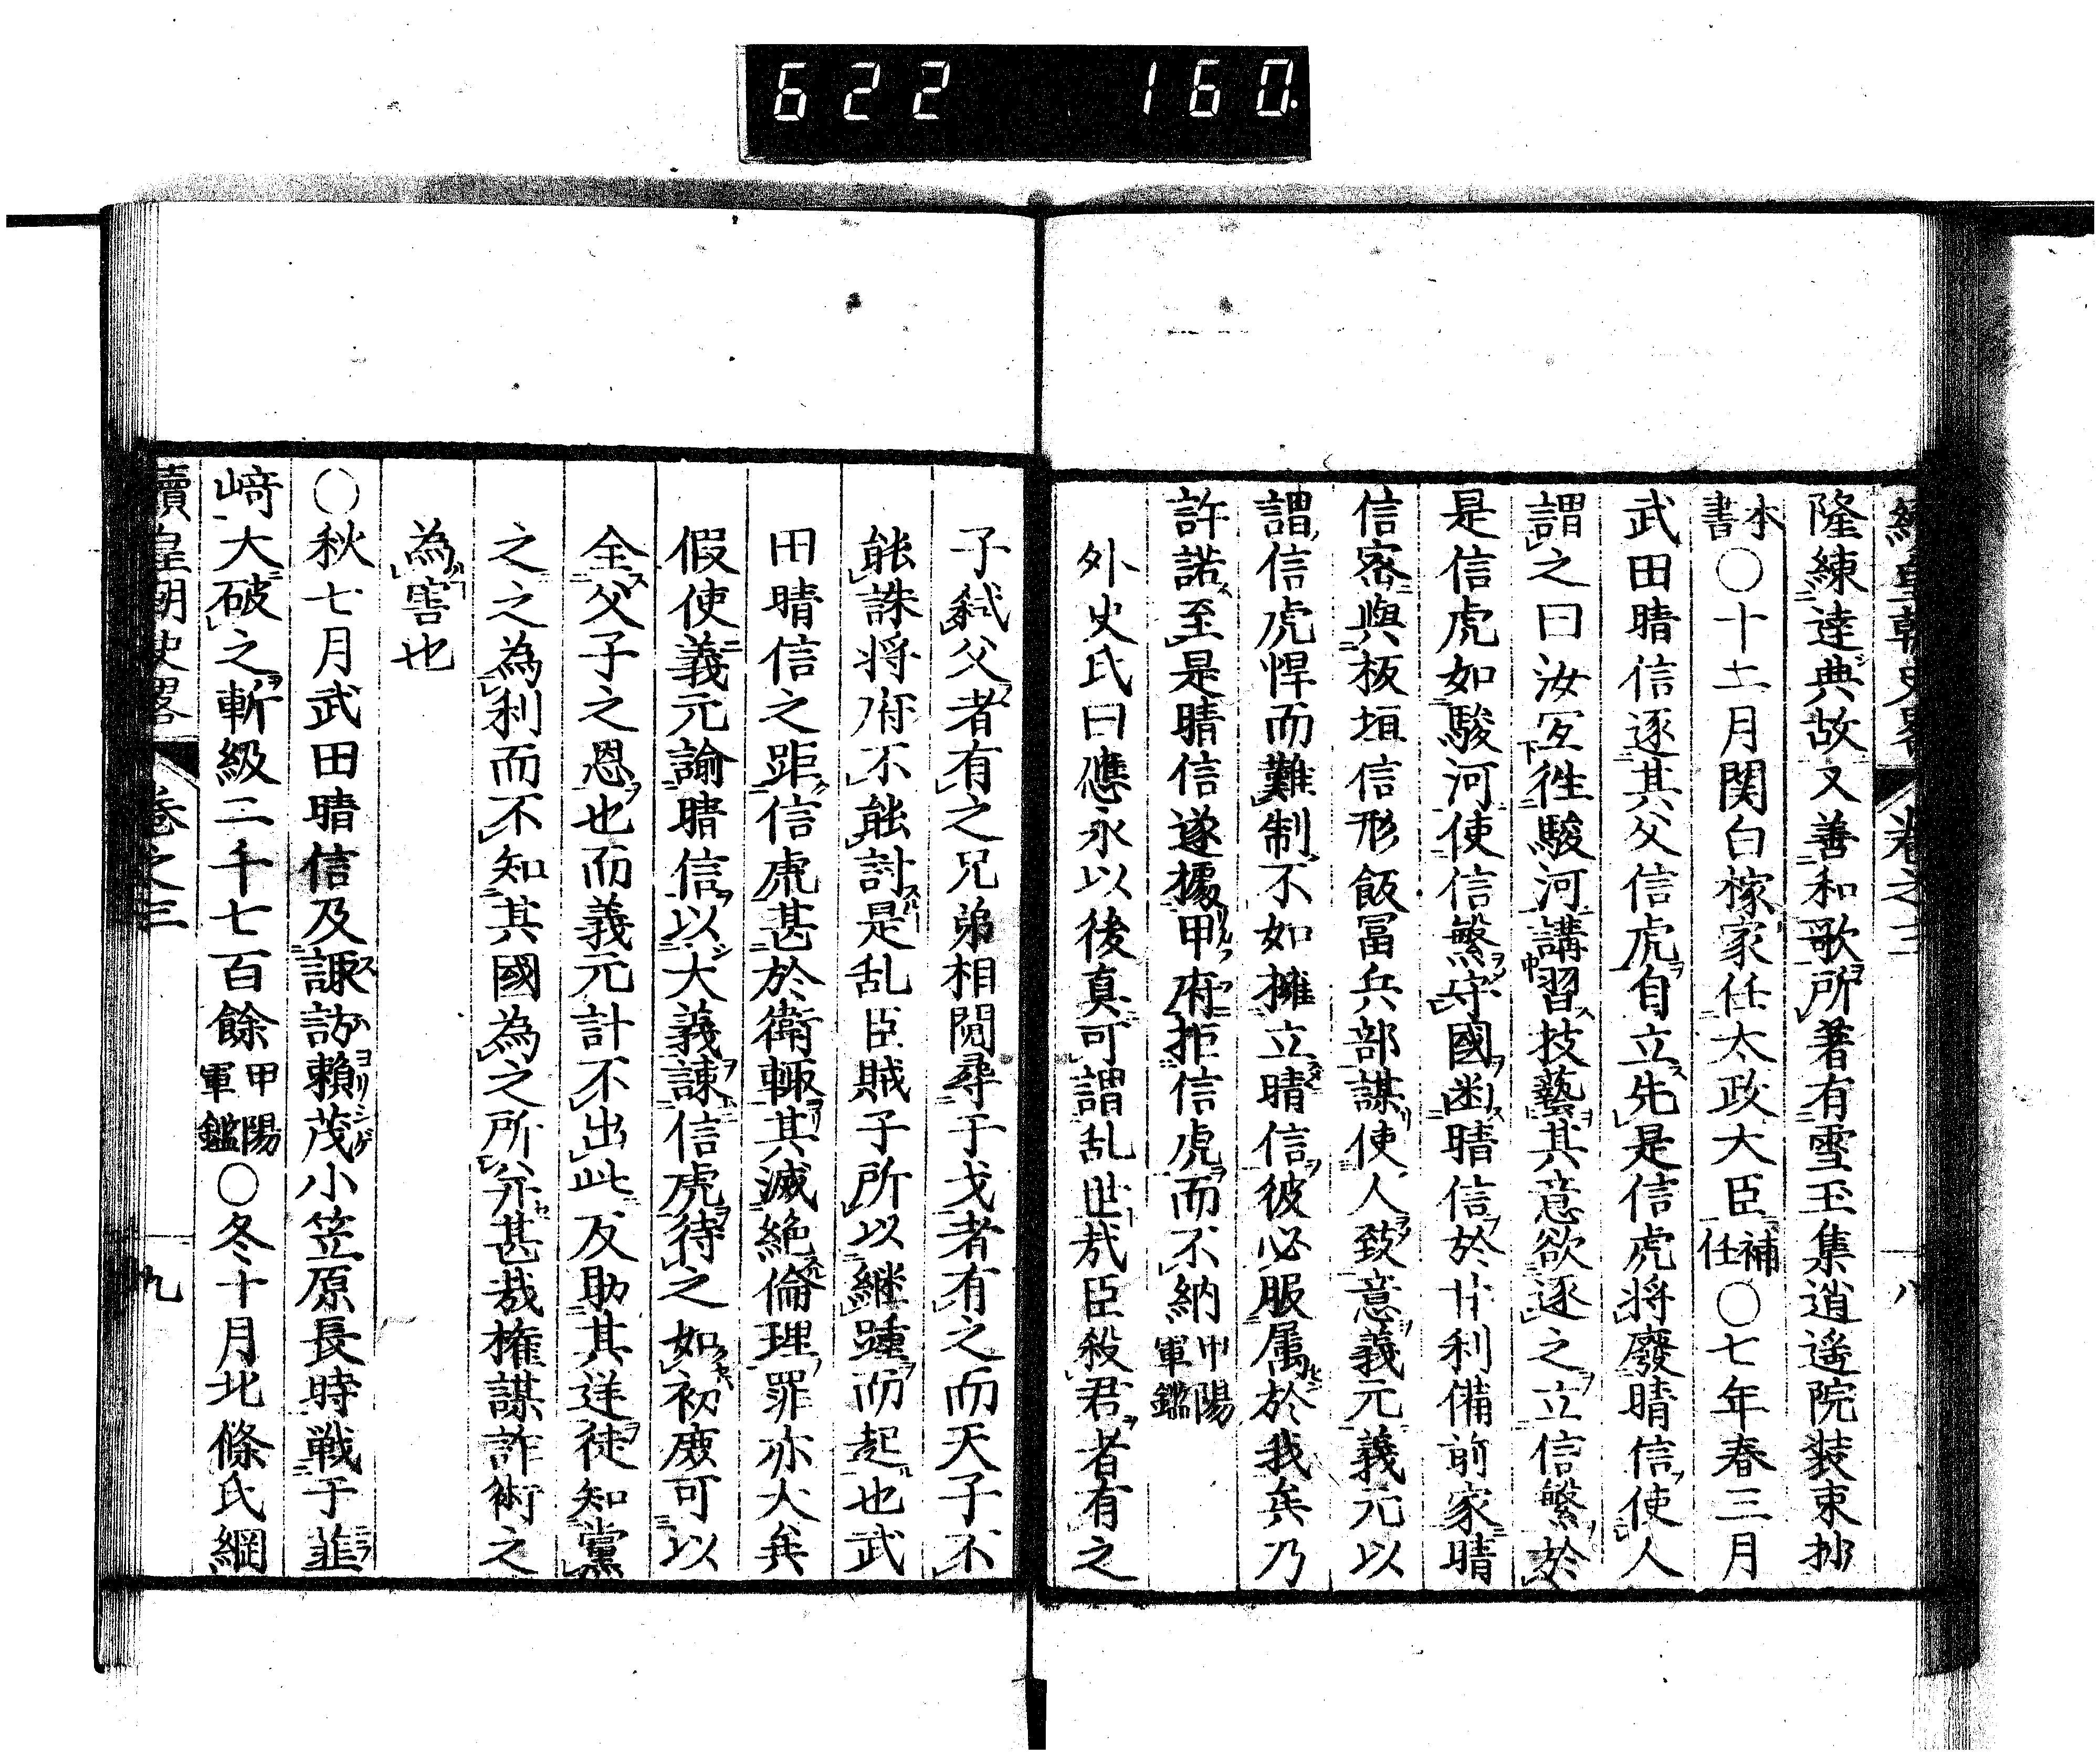 622 160.
續皇朝史畧 卷之三 八
隆練達典故又善和歌所著有雪玉集逍遥院装束抄
本書〇十二月関白稼家任太政大臣補任〇七年春三月
武田晴信逐其父信虎自立先是信虎将廢晴信使人
謂之曰汝宜徃駿河講習技藝其意欲逐之立信繁於
是信虎如駿河使信繁守國囚晴信於甘利備前家晴
信密與板垣信形飯冨兵部謀使人致意義元義元以
謂信虎悍而難制不如擁立晴信彼必服属於我矣乃
許諾至是晴信遂據甲府拒信虎而不納甲陽軍鑑
外史氏曰應永以後真可謂乱世㢤臣殺君者有之
子弑父者有之兄弟相鬩尋于戈者有之而天子不
能誅将府不能討是乱臣賊子所以継踵而起也武
田晴信之距信虎甚於衛輒其滅絶倫理罪亦大矣
假使義元諭晴信以大義諫信虎待之如初庶可以
全父子之恩也而義元計不出此反助其逆徒知黨
之之為利而不知其國為之所弁甚哉権謀詐術之
為害也
〇秋七月武田晴信及諏訪頼茂小笠原長時戦于韮
﨑大破之斬級二千七百餘甲陽軍鑑〇冬十月北條氏綱
續皇朝史畧 卷之三 九